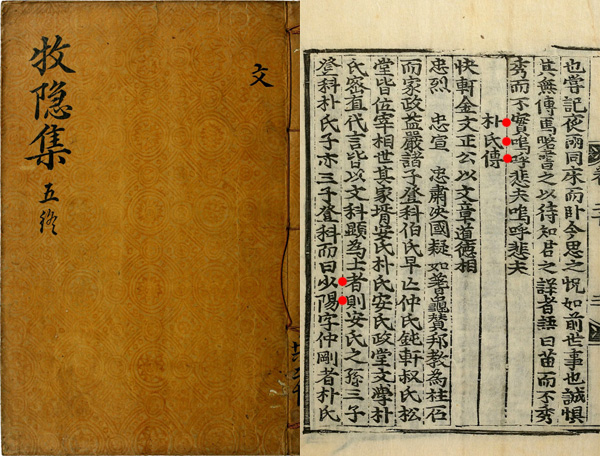 牧隐集 五終
文
也嘗記夜雨同床而卧今思之怳如前世事也誠懼
其無傳焉略書之以待知君之詳者語曰苗而不秀
秀而不實嗚呼悲夫嗚呼悲夫
朴氏傳
快軒金文正公以文章道德相
忠烈 忠宣 忠肅決國疑如蓍龜賛邦教為柱石
而家政益嚴諸子登科伯氏早亡仲氏鈍軒叔氏松
堂皆位宰相世其家壻安氏朴氏安氏政堂文學朴
氏密直代言皆以文科顯為士者則安氏之孫三子
登科朴氏子亦三子登科而曰少陽字仲剛者朴氏